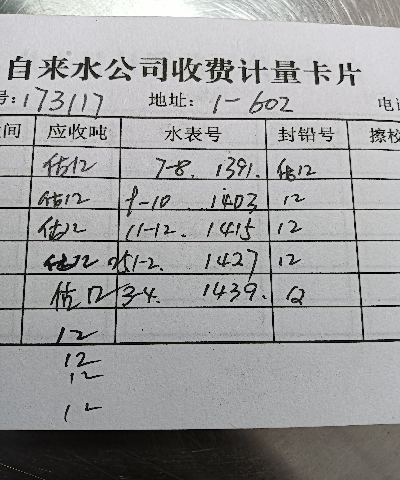 自来水公司收费计量卡片
号:173117 地址: 1-602 电
间 应收吨 水表号 封铅号 擦校
估12 7-8. 1391. 估12
估12 9-10 1403 12
估12 11-12. 1415 12
估12 1-2. 1427 12
估12 3-4. 1439. 12
12
12
12
12